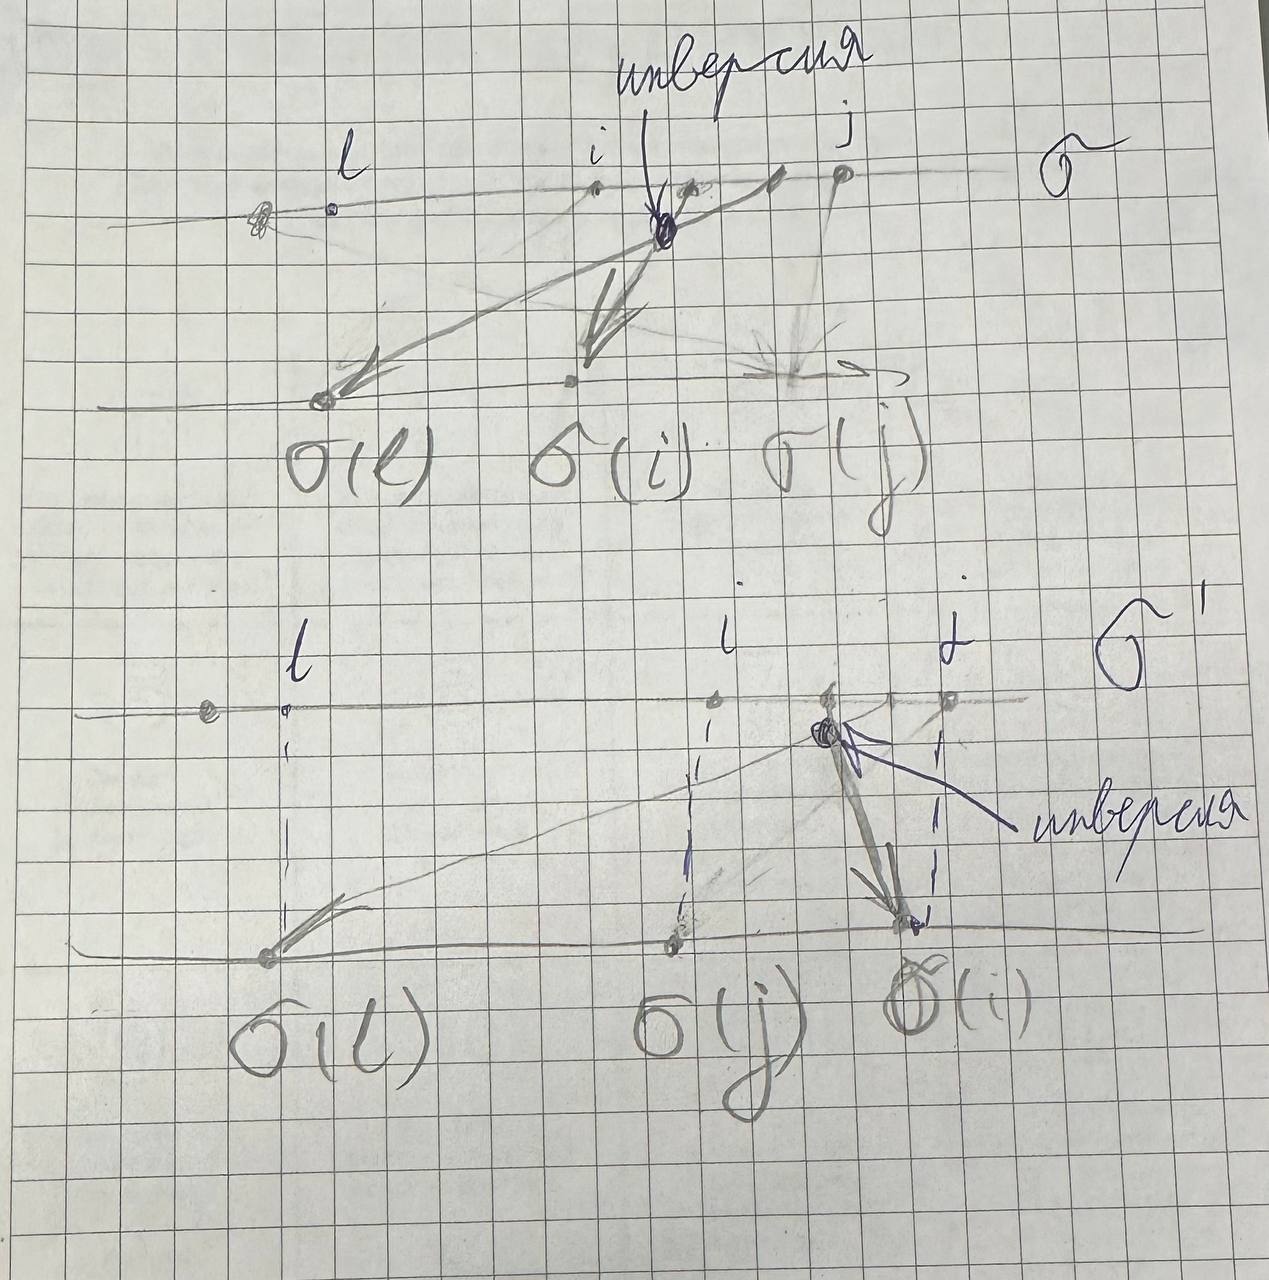 инверсия
l i j σ
σ(l) σ(i) σ(j)
l i j σ'
инверсия
σ(l) σ(j) σ(i)